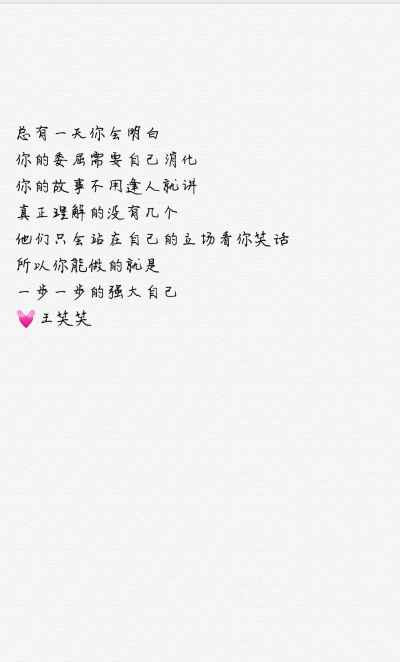 总有一天你会明白
你的委屈需要自己消化
你的故事不用逢人就讲
真正理解的没有几个
他们只会站在自己的立场看你笑话
所以你能做的就是
一步一步的强大自己
💓王笑笑